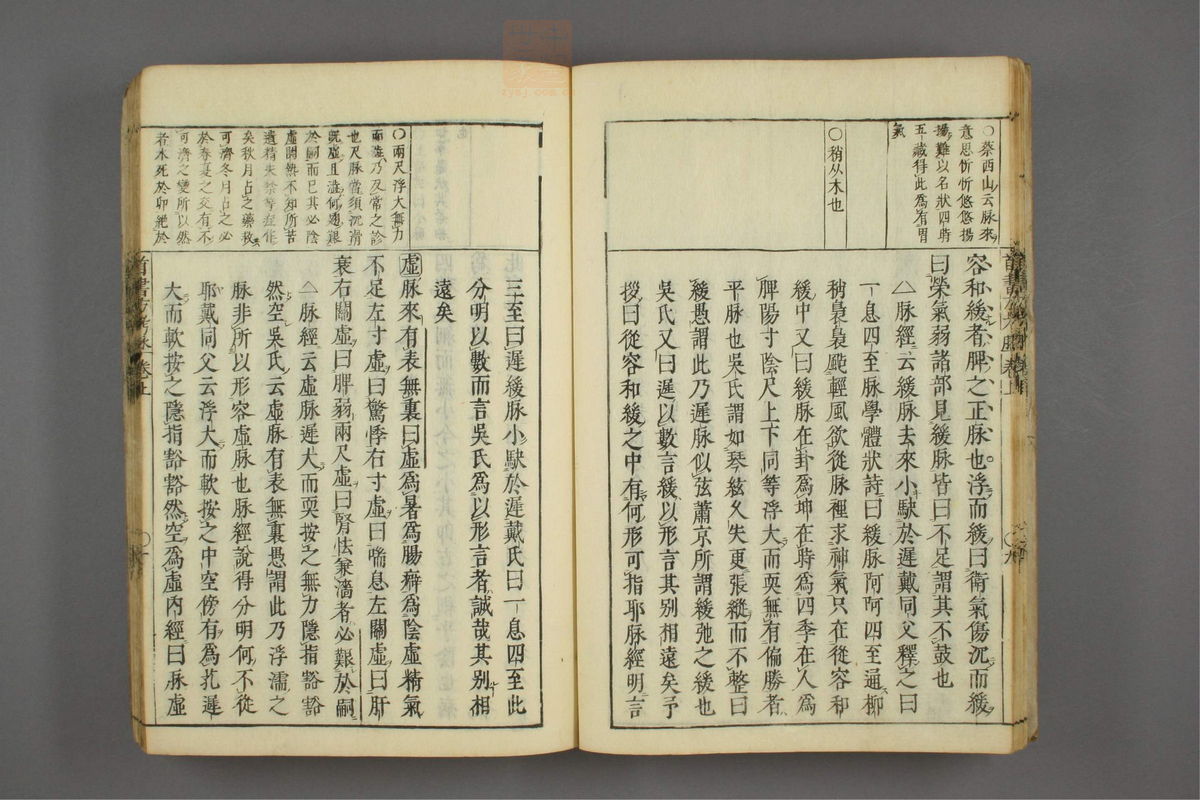 ○蔡西山云脉來
意思忻忻悠悠揚
揚難以名狀四時
五藏得此爲有胃
氣
○稍从木也
容和緩者脾之正脉也浮而緩曰衛氣傷沉而緩
曰榮氣弱諸部見緩脉皆曰不足謂其不鼓也
△脉經云緩脉去來小駃於遲戴同父釋之曰
一息四至脉學體狀詩曰緩脉阿阿四至通柳
稍裊裊颭輕風欲從脉裡求神氣只在從容和
緩中又曰緩脉在卦爲坤在時爲四季在人爲
脾陽寸陰尺上下同等浮大而耎無有偏勝者
平脉也吳氏謂如琴絃久失更張縱而不整曰
緩愚謂此乃遲脉似弦蕭京所謂緩弛之緩也
吳氏又曰遲以數言緩以形言其別相遠矣予
按曰從容和緩之中有何形可指耶脉經明言
○兩尺浮大無力
而陰乃反常之診
也尺脉當須沉滑
既虛且濇何趐艱
於嗣而已其必陰
虛關熱不知所苦
遺精失禁等症作
矣秋月占之藥救
可濟冬月占之必
於春夏之交有不
可濟之變所以然
者水死於卯絕於
三至曰遲緩脉小駃於遲戴氏曰一息四至此
分明以數而言吳氏爲以形言者誠哉其別相
遠矣
虛脉來有表無裏曰虛爲暑爲腸癖爲陰虛精氣
不足左寸虛曰驚悸右寸虛曰喘息左關虛曰肝
衰右關虛曰脾弱兩尺虛曰腎怯兼濇者必艱於嗣
△脉經云虛脉遲大而耎按之無力隱指豁豁
然空吳氏云虛脉有表無裏愚謂此乃浮濡之
脉非所以形容虛脉也脉經說得分明何不從
耶戴同父云浮大而軟按之中空傍有爲芤遲
大而軟按之隱指豁豁然空爲虛內經曰脉虛